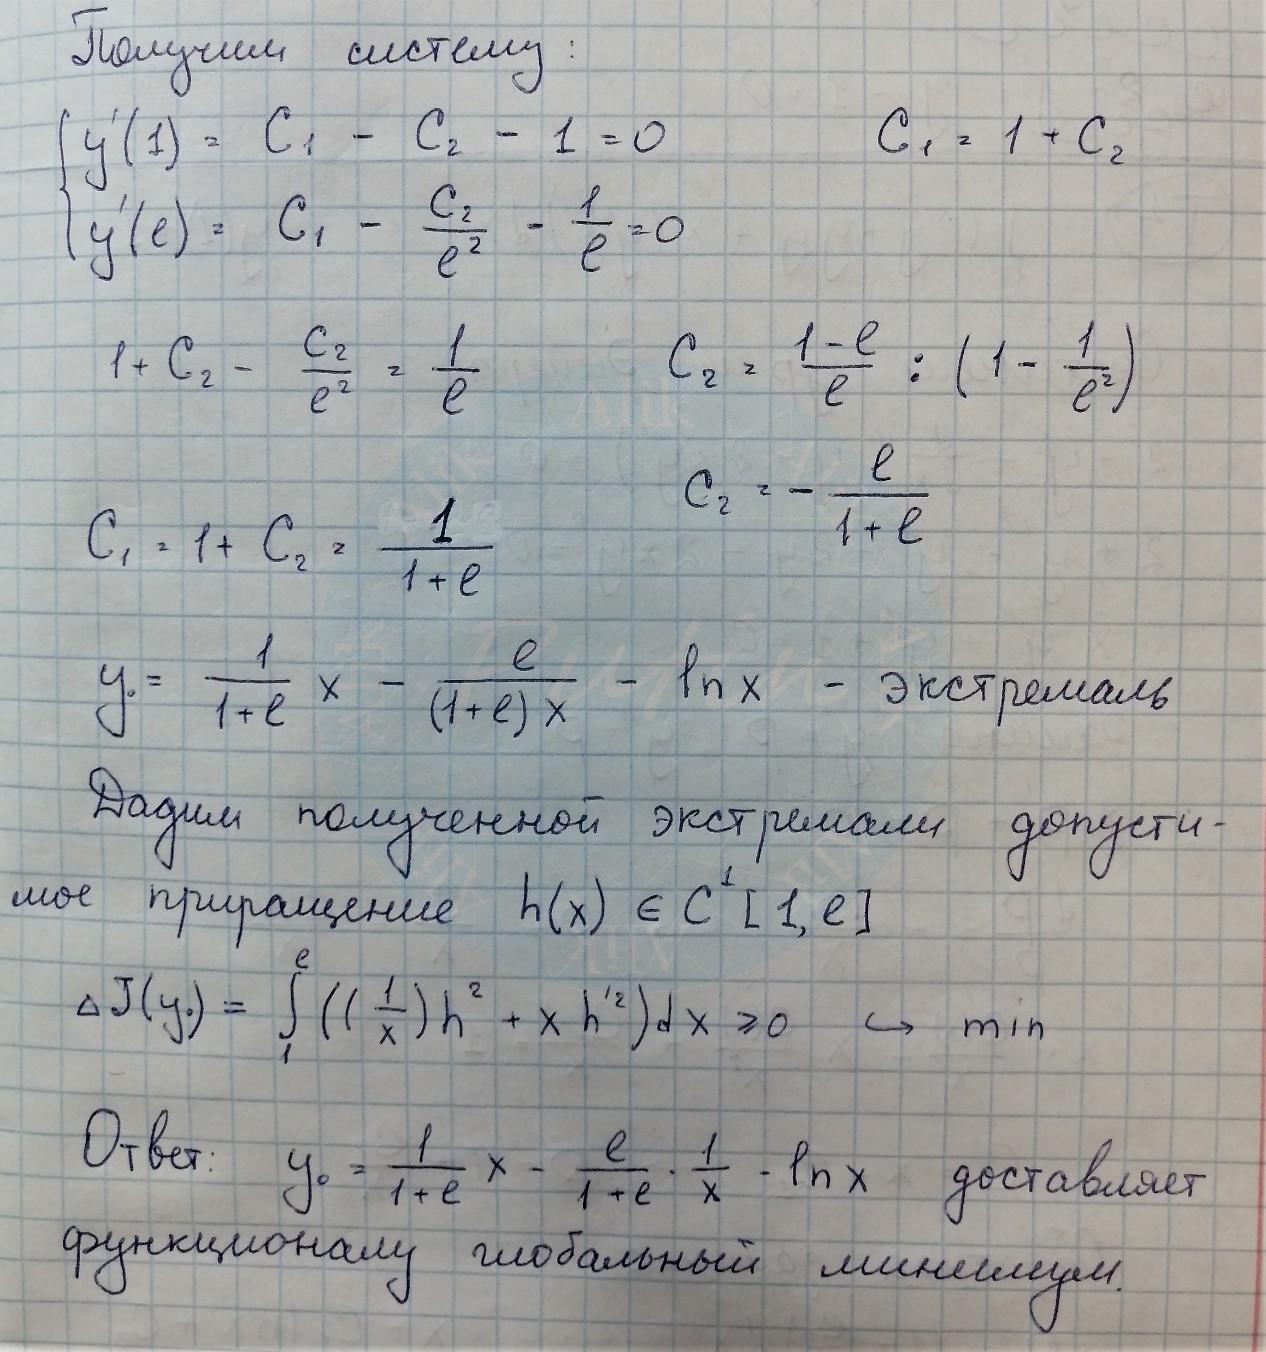 Получим систему:
{ y'(1) = C₁ - C₂ - 1 = 0    C₁ = 1 + C₂
{ y'(e) = C₁ - C₂/e² - 1/e = 0
1 + C₂ - C₂/e² = 1/e    C₂ = (1-e)/e : (1 - 1/e²)
C₂ = - e/(1+e)
C₁ = 1 + C₂ = 1/(1+e)
y₀ = 1/(1+e) x - e/((1+e)x) - ln x - экстремаль
Дадим полученной экстремали допусти-
мое приращение h(x) ∈ C¹[1, e]
ΔJ(y₀) = ∫₁ᵉ ((1/x)h² + x h'²)dx ≥ 0 ↪ min
Ответ: y₀ = 1/(1+e) x - e/(1+e) · 1/x - ln x доставляет
функционалу глобальный минимум.